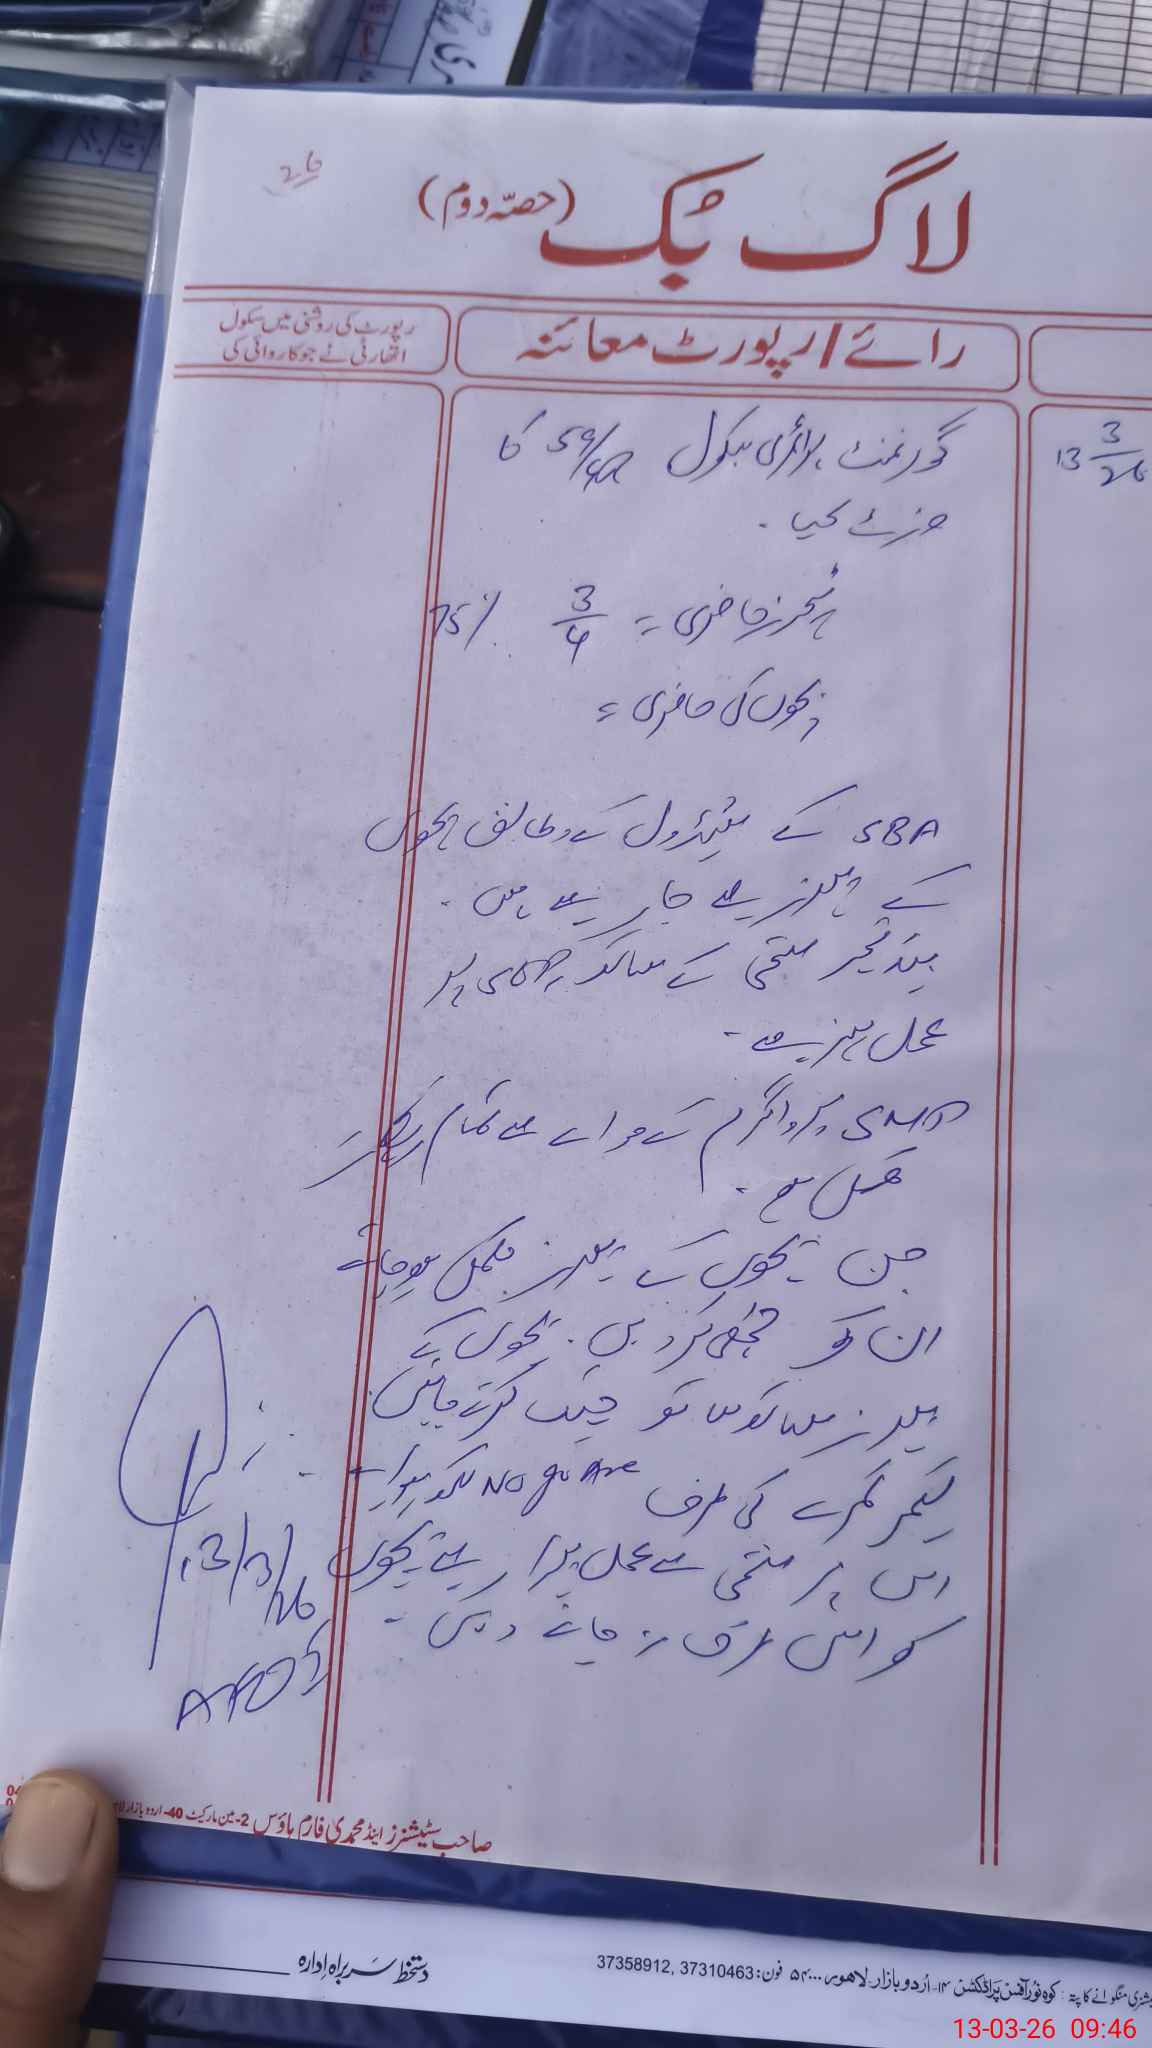 26
لاگ بُک (حصّہ دوم)
رائے/رپورٹ معائنہ
رپورٹ کی روشنی میں سکول
اتھارٹی نے جو کاروائی کی
13 3/26
گورنمنٹ پرائمری سکول 59/ کا
وزٹ کیا ۔
ٹیچرز حاضری = 3/4 75%
بچوں کی حاضری =
SBA کے شیڈول کے مطابق بچوں
کے پیپرز لیے جا رہے ہیں ۔
ہیڈ ٹیچر سختی کے ساتھ SOP پر
عمل
پروگرام کے حوالے سے تمام ریکارڈ
مکمل ہے ۔
جن بچوں کے پیپرز مکمل ہو جائے
ان کو چھٹی کر دیں ۔ بچوں کے
پیپرز ساتھ ساتھ چیک کرتے جائیں۔
کمرے کی طرف No go Area لکھ
اس پر سختی سے عمل بچوں
کو اس طرف نہ جانے دیں ۔
13/3/26
صاحب سٹیشنرز اینڈ محمدی فارم ہاؤس 2-مین مارکیٹ 40-اردو بازار
دستخط سربراہ ادارہ
منگوانے کا پتہ : کوہ نور آفس پراڈکٹس ۱۴-اُردو بازار۔لاہور۔۵۴۰۰۰ فون: 37310463, 37358912
13-03-26 09:46